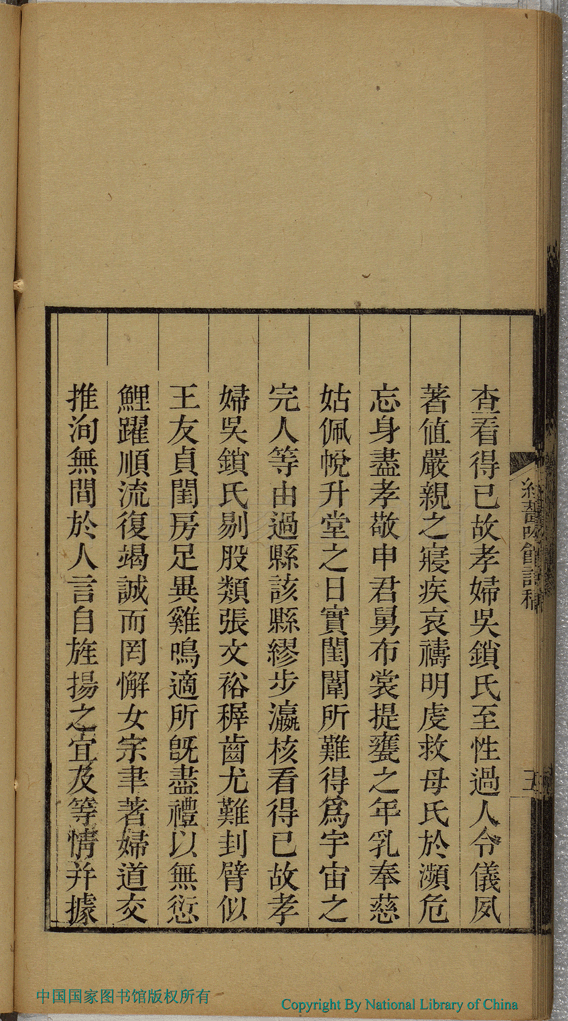 查看得已故孝婦吳鎖氏至性過人令儀夙
著值嚴親之寢疾哀禱明虔救母氏於瀕危
忘身盡孝敬申君舅布裳提甕之年乳奉慈
姑佩帨升堂之日實閨闈所難得爲宇宙之
完人等由過縣該縣繆步瀛核看得已故孝
婦吳鎖氏剔股類張文裕穉齒尤難刲臂似
王友貞閨房足異雞鳴適所旣盡禮以無愆
鯉躍順流復竭誠而罔懈女宗聿著婦道交
推洵無間於人言自旌揚之宜及等情并據
五
中国国家图书馆版权所有
Copyright By National Library of China